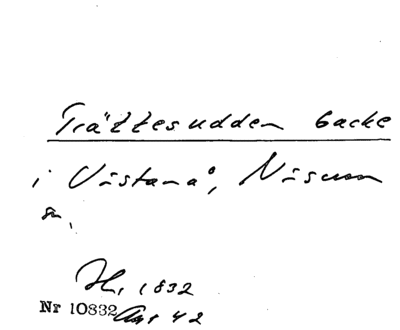 Trättesudden backe
i Västanå, Näsum
sn.
H. 1832
Nr 10832 Ans 42